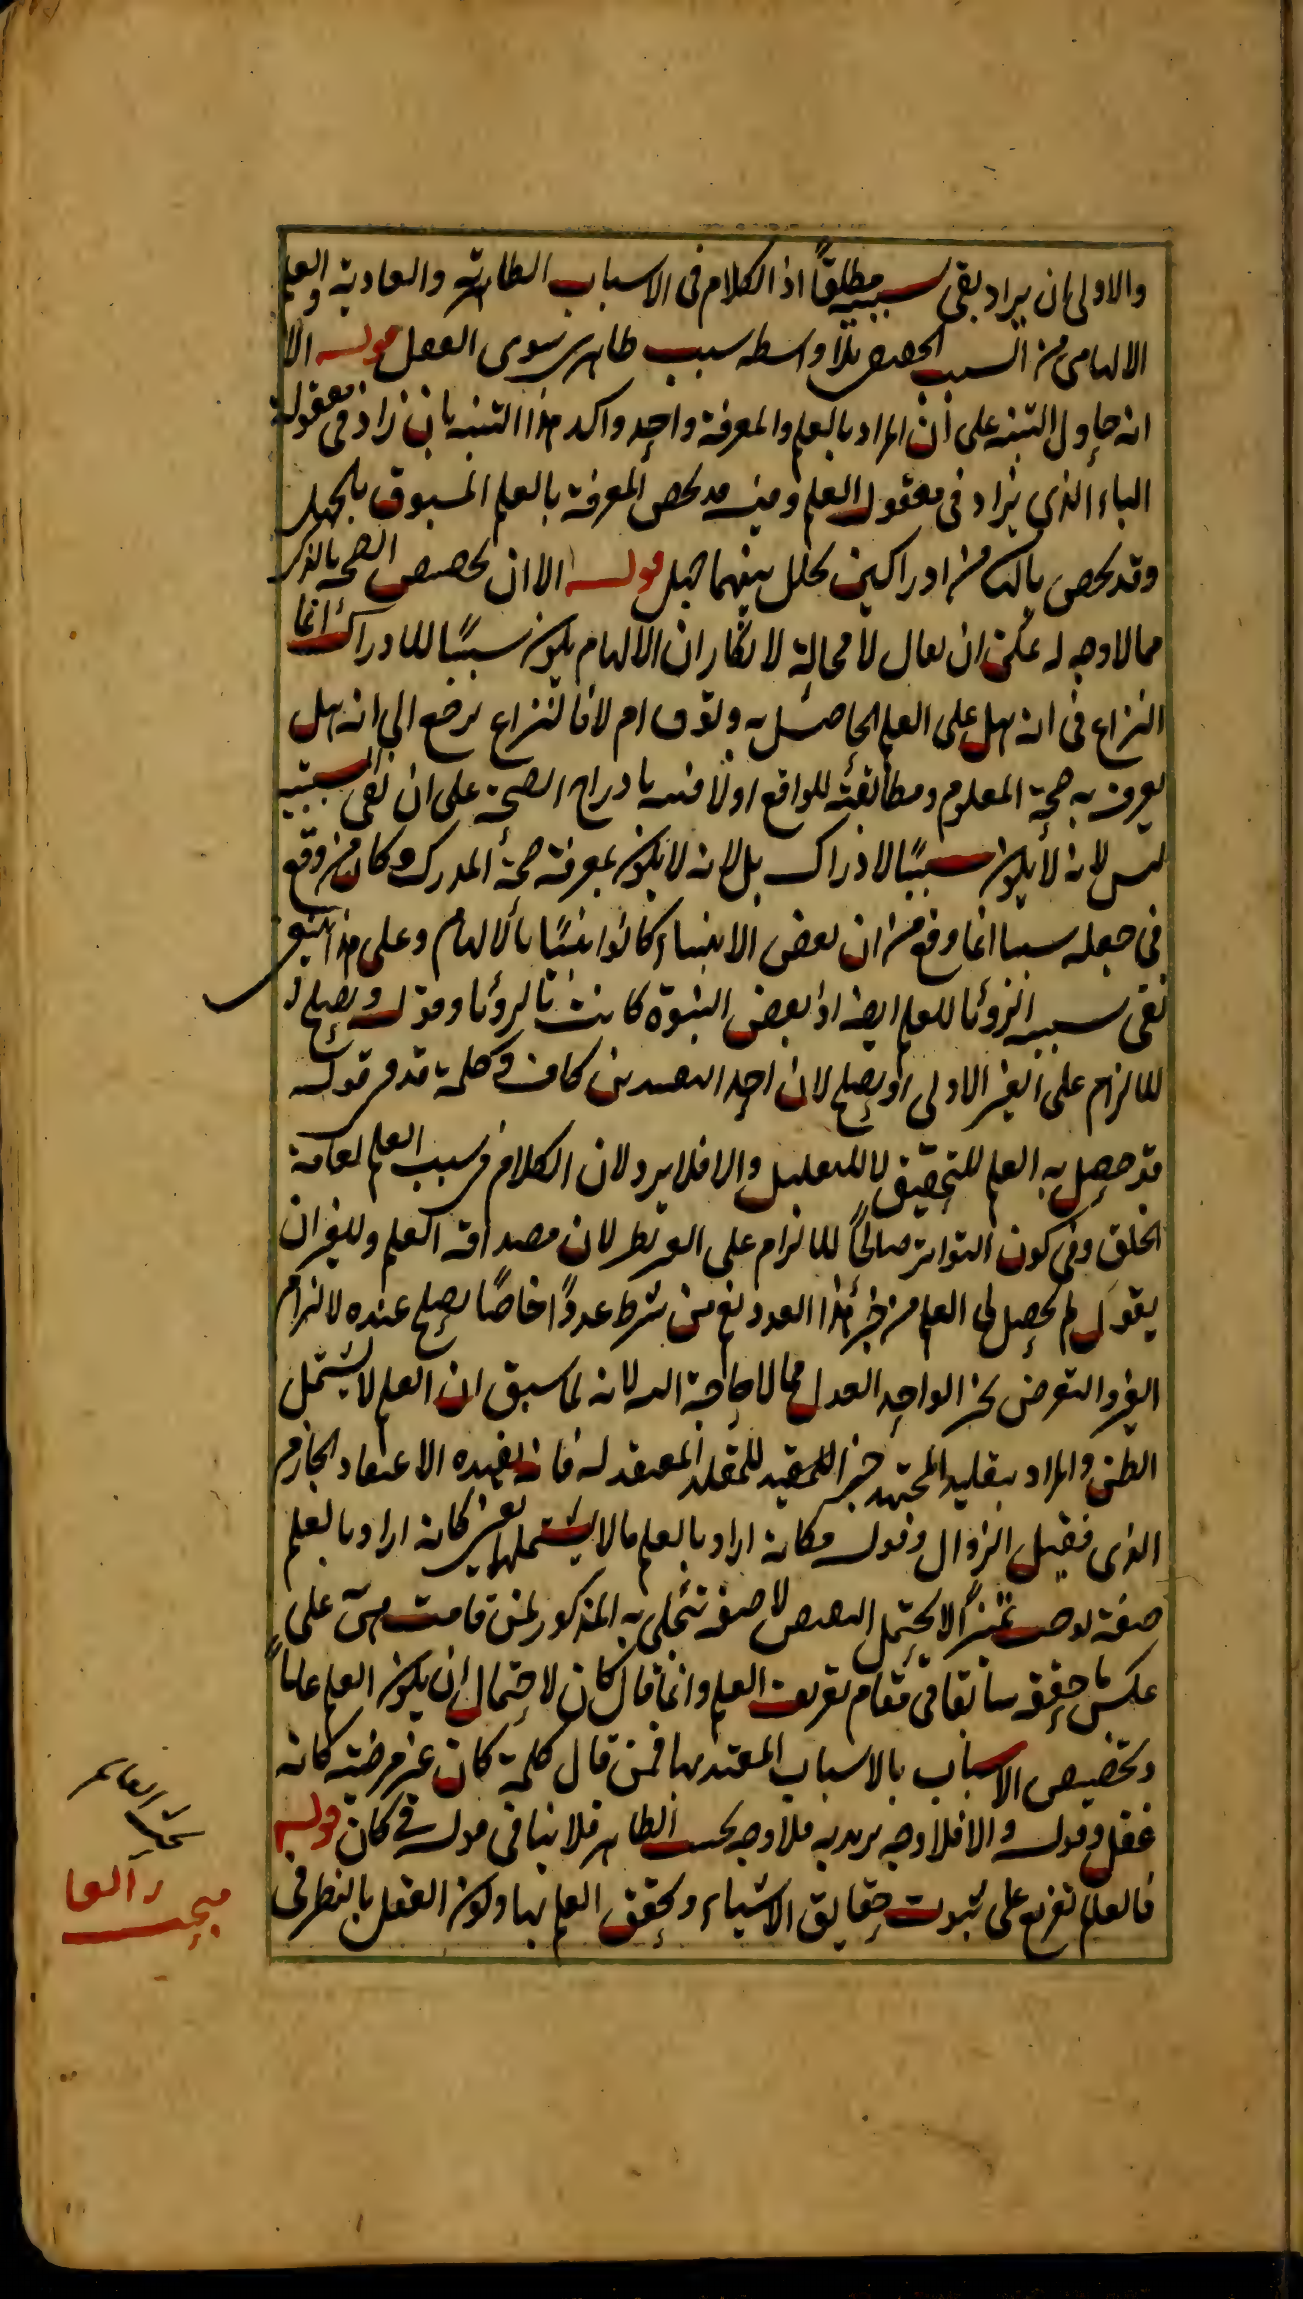 والاولى ان يراد بقى سببيه مطلقاً اذ الكلام فى الاسباب الظاهرة والعادية والعلم
الالهامى من السبب الحقيقى بلا واسطه سبب ظاهرى سوى العقل قوله الا
انه حاول التنبيه على ان المراد بالعلم والمعرفة واحد واكد هذا التنبيه بان زاد فى مفعوله
الباء الذى يزاد فى مفعول العلم ومنه قد يخص المعرفة بالعلم المسبوق بالجهل
وقد يخص بالثانى من ادراكين تخلل بينهما جهل قوله الا ان تخصيص الصحة بالذكر
مما لا وجه له يمكن ان يقال لا محالة لا انكار ان الالهام يكون سببًا للادراك انما
النزاع فى انه هل على العلم الحاصل به وثوق ام لا فالنزاع يرجع الى انه هل
يعرف به صحة المعلوم ومطابقته للواقع اولا فنبه بادراج الصحة على ان نفى السببيه
ليس لانه لا يكون سببًا لادراك بل لانه لا يكون لمعرفة صحة المدرك وكان من وقع
فى جعله سببا انما وقع من ان بعض الانبياء كانوا نبيًا بالالهام وعلى هذا ينبغى
نفى سببيه الرؤيا للعلم ايضا اذ بعض النبوة كانت بالرؤيا وقوله ويصلح
للالزام على الغير الاولى او يصلح لان احد القيدين كاف وكلمة قد فى قوله
قد حصل به العلم للتحقيق لا للتعليل والا فلا يرد لان الكلام فى سبب العلم لعامة
الخلق وفى كون التواتر صالحًا للالزام على الغير نظر لان مصداقه العلم وللغير ان
يقول لم يحصل لى العلم من خبر هذا العدد نعم من شرط عددًا خاصًا يصلح عنده لالزام
الغير والتعرض لخبر الواحد العدل مما لا حاجة اليه لانه لما سبق ان العلم لا يشتمل
الظن والمراد بتقليد المجتهد خبر المقلد المعتقد له فانه يفيده الاعتقاد الجازم
الذى فقبل الزوال وقوله فكانه اراد بالعلم ما لا يشملهما يعنى كانه اراد بالعلم
صفة توجب تميزًا لا يحتمل النقيض لا صفة تتجلى به المذكور لمن قامت هى على
عكس ما حققه سابقا فى مقام تعريف العلم وانما قال كان لاحتمال ان يكون العلم عاماً
وتخصيص الاسباب بالاسباب المعتد بها فمن قال كلمة كان غير مرضية كانه
غفل وقوله والا فلا وجه يريد به فلا وجه بحسب الظاهر فلا ينافى قوله فى كان قوله
فالعلم تفريع على ثبوت حقايق الاشياء وتحقق العلم بها وكون العقل بالنظر فى
بحث العالم
مبحث العا